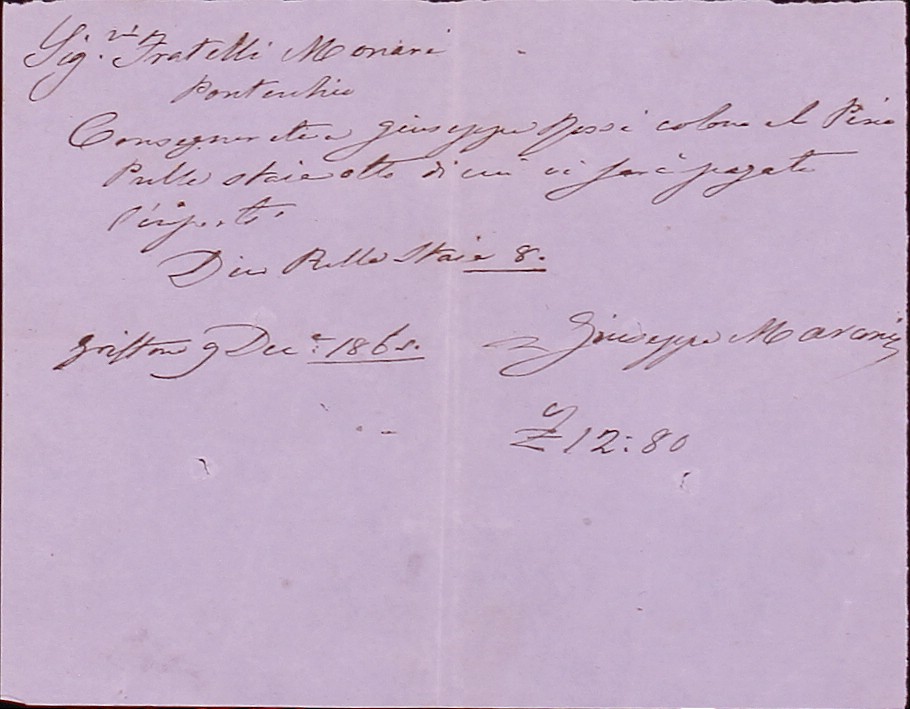 Sig.ri Fratelli Monari
Pontecchio
Consegnerete a Giuseppe Rossi colono al Pino
Pulle staia otto di cui vi sarà pagato
l'importo
Dico Pulle Staia 8.
Griffone 9 Dec.e 186
Giuseppe Marconi
£ 12:80